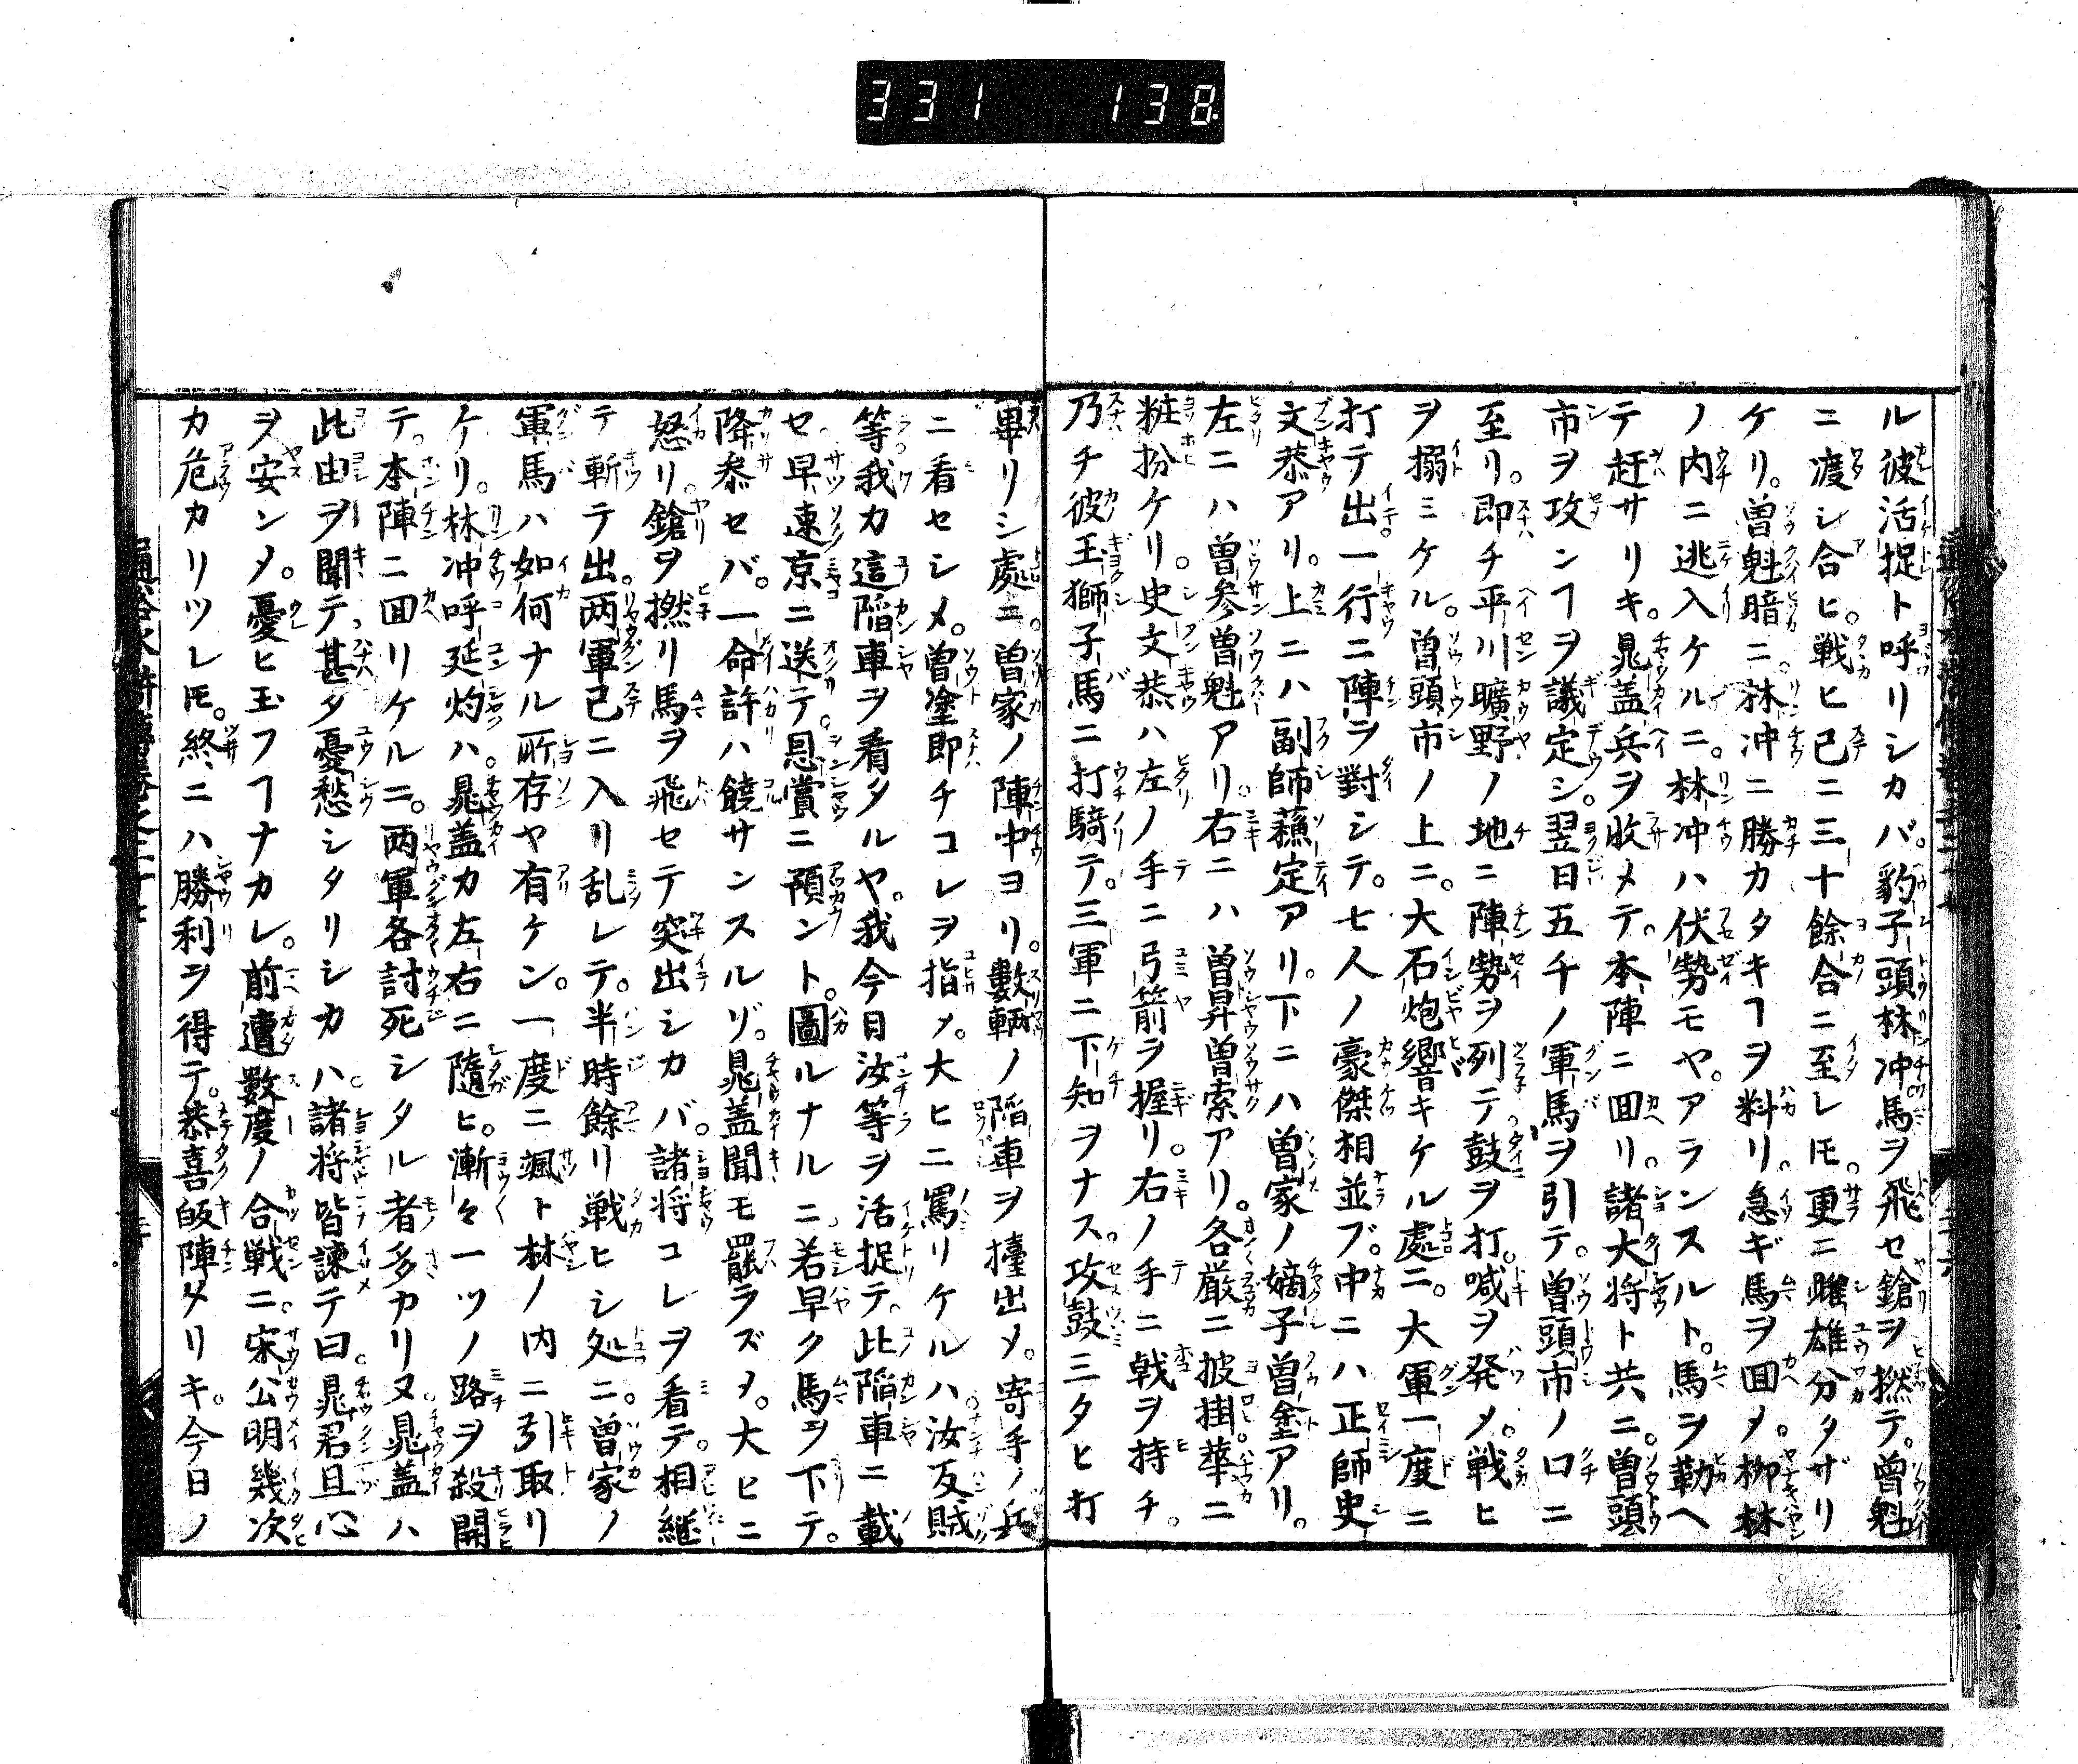 331 138
ル彼活捉ト呼リシカバ。豹子頭林冲馬ヲ飛セ鎗ヲ撚テ。曽魁
ニ渡シ合ヒ。戦ヒ已ニ三十餘合ニ至レ𪜈。更ニ雌雄分タザリ
ケリ。曽魁暗ニ林冲ニ勝カタキヿヲ料リ。急ギ馬ヲ囬メ。柳林
ノ内ニ逃入ケルニ。林冲ハ伏勢モヤ。アランスルト。馬ヲ勒ヘ
テ赶サリキ。晁盖兵ヲ收メテ。本陣ニ囬リ。諸大将ト共ニ。曽頭
市ヲ攻ンヿヲ議定シ。翌日五千ノ軍馬ヲ引テ。曽頭市ノ口ニ
至リ。即チ平川曠野ノ地ニ陣勢ヲ列テ鼓ヲ打。喊ヲ発メ。戦ヒ
ヲ搦ミケル。曽頭市ノ上ニ。大石炮響キケル處ニ。大軍一度ニ
打テ出。一行ニ陣ヲ對シテ。七人ノ豪傑相並ブ。中ニハ正師史
文恭アリ。上ニハ副師蘓定アリ。下ニハ曽家ノ嫡子曽塗アリ。
左ニハ曽参曽魁アリ。右ニハ曽昇曽索アリ。各厳ニ披掛華ニ
粧扮ケリ。史文恭ハ左ノ手ニ弓箭ヲ握リ。右ノ手ニ戟ヲ持チ。
乃チ彼玉獅子馬ニ打騎テ。三軍ニ下知ヲナス。攻鼓三タヒ打
畢リシ處ニ。曽家ノ陣中ヨリ。數輌ノ陷車ヲ擡出メ。寄手ノ兵
ニ看セシメ。曽塗即チコレヲ指メ。大ヒニ罵リケルハ。汝反賊
等我カ這陷車ヲ看タルヤ。我今日汝等ヲ活捉テ。此陷車ニ載
セ早速京ニ送テ。恩賞ニ預ント。圖ルナルニ若早ク馬ヲ下テ。
降参セバ。一命許ハ饒サンスルゾ。晁盖聞モ罷ラズメ。大ヒニ
怒リ。鎗ヲ撚リ馬ヲ飛セテ突出シカバ。諸将コレヲ看テ。相継
テ斬テ出。两軍已ニ入リ乱レテ。半時餘リ戦ヒシ処ニ。曽家ノ
軍馬ハ如何ナル所存ヤ有ケン。一度ニ颯ト林ノ内ニ引取リ
ケリ。林冲呼延灼ハ。晁盖カ左右ニ隨ヒ。漸々一ツノ路ヲ殺開
テ。本陣ニ囬リケルニ。两軍各討死シタル者多カリヌ。晁盖ハ
此由ヲ聞テ甚タ憂愁シタリシカハ。諸将皆諫テ曰。晁君且心
ヲ安ンメ。憂ヒ玉フヿナカレ。前遭數度ノ合戦ニ。宋公明幾次
カ危カリツレ𪜈。終ニハ勝利ヲ得テ。恭喜皈陣メリキ。今日ノ